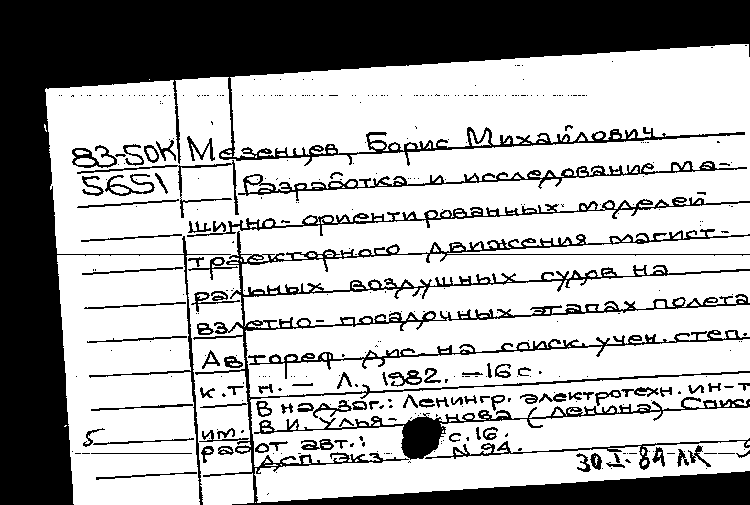 83-50К Мезенцев, Борис Михайлович.
5651 Разработка и исследование ма-
шинно-ориентированных моделей
траекторного движения магист-
ральных воздушных судов на
взлетно-посадочных этапах полета
Автореф. дис. на соиск. учен. степ.
к.т.н. — Л., 1982. — 16 с.
В надзаг.: Ленингр. электротехн. ин-т
им. В.И. Улья- нова (Ленина) Списо
5 работ авт.: с.16.
Дсп. Экз. N 94.
30.I.84 ЛК